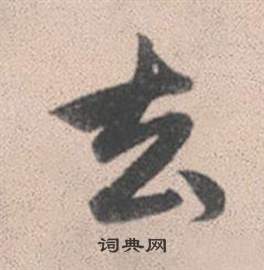 去
词典网